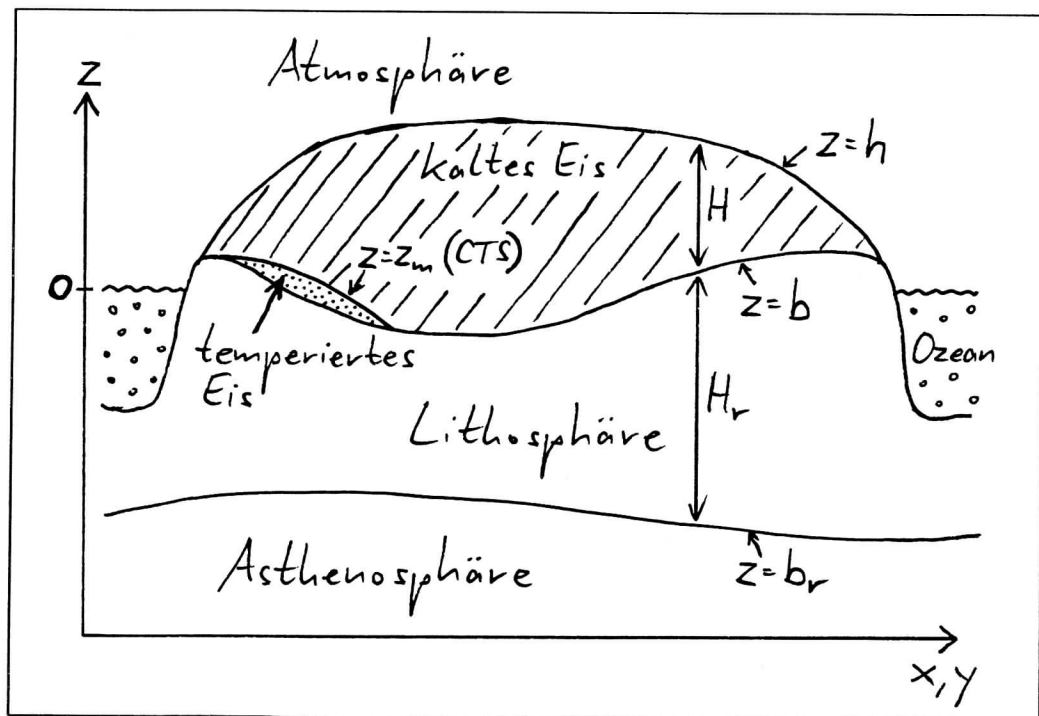 z
Atmosphäre
z=h
kaltes Eis
H
z=zm (CTS)
0
z=b
temperiertes
Eis
Ozean
Hr
Lithosphäre
z=br
Asthenosphäre
x,y